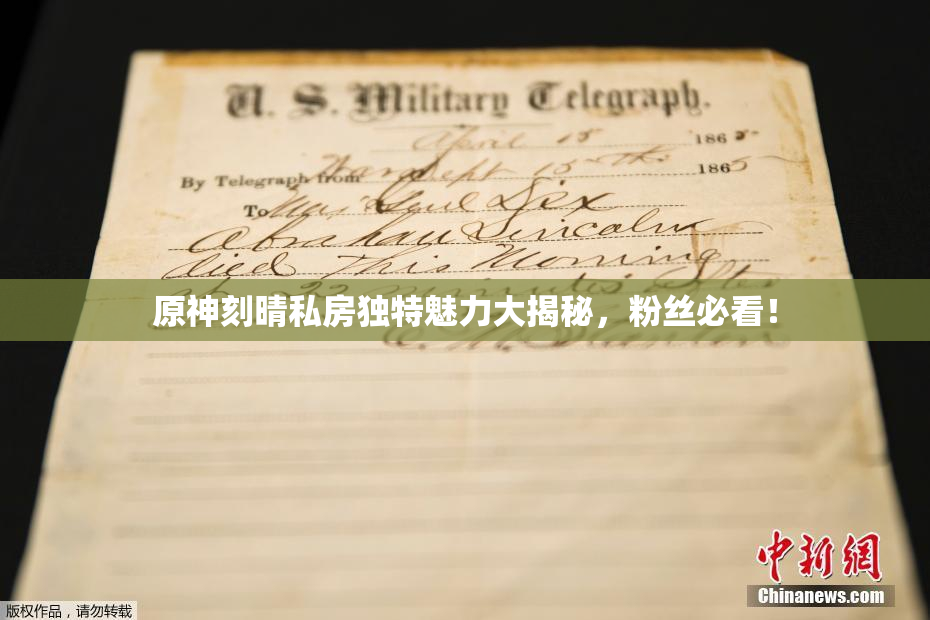 U. S. Military Telegraph.
April 15 1865
By Telegraph from War Dept 15th 1865
To Maj Genl Dix
Abraham Lincoln
died This Morning
at 22 minutes after
原神刻晴私房独特魅力大揭秘，粉丝必看！
E. M. Stanton
中新网
Chinanews.com
版权作品，请勿转载